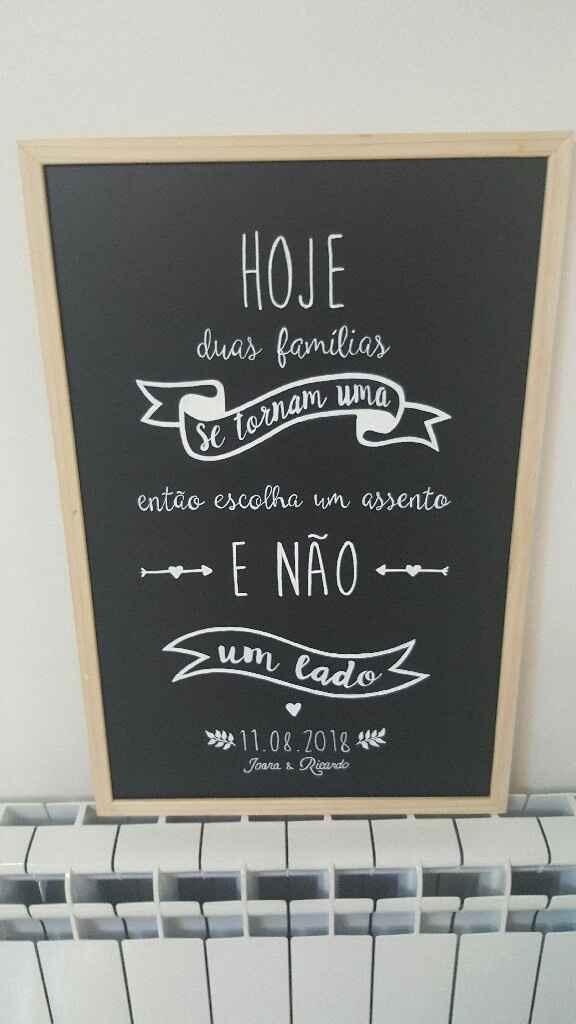 HOJE
duas famílias
se tornam uma
então escolha um assento
E NÃO
um lado
11.08.2018
Joana & Ricardo